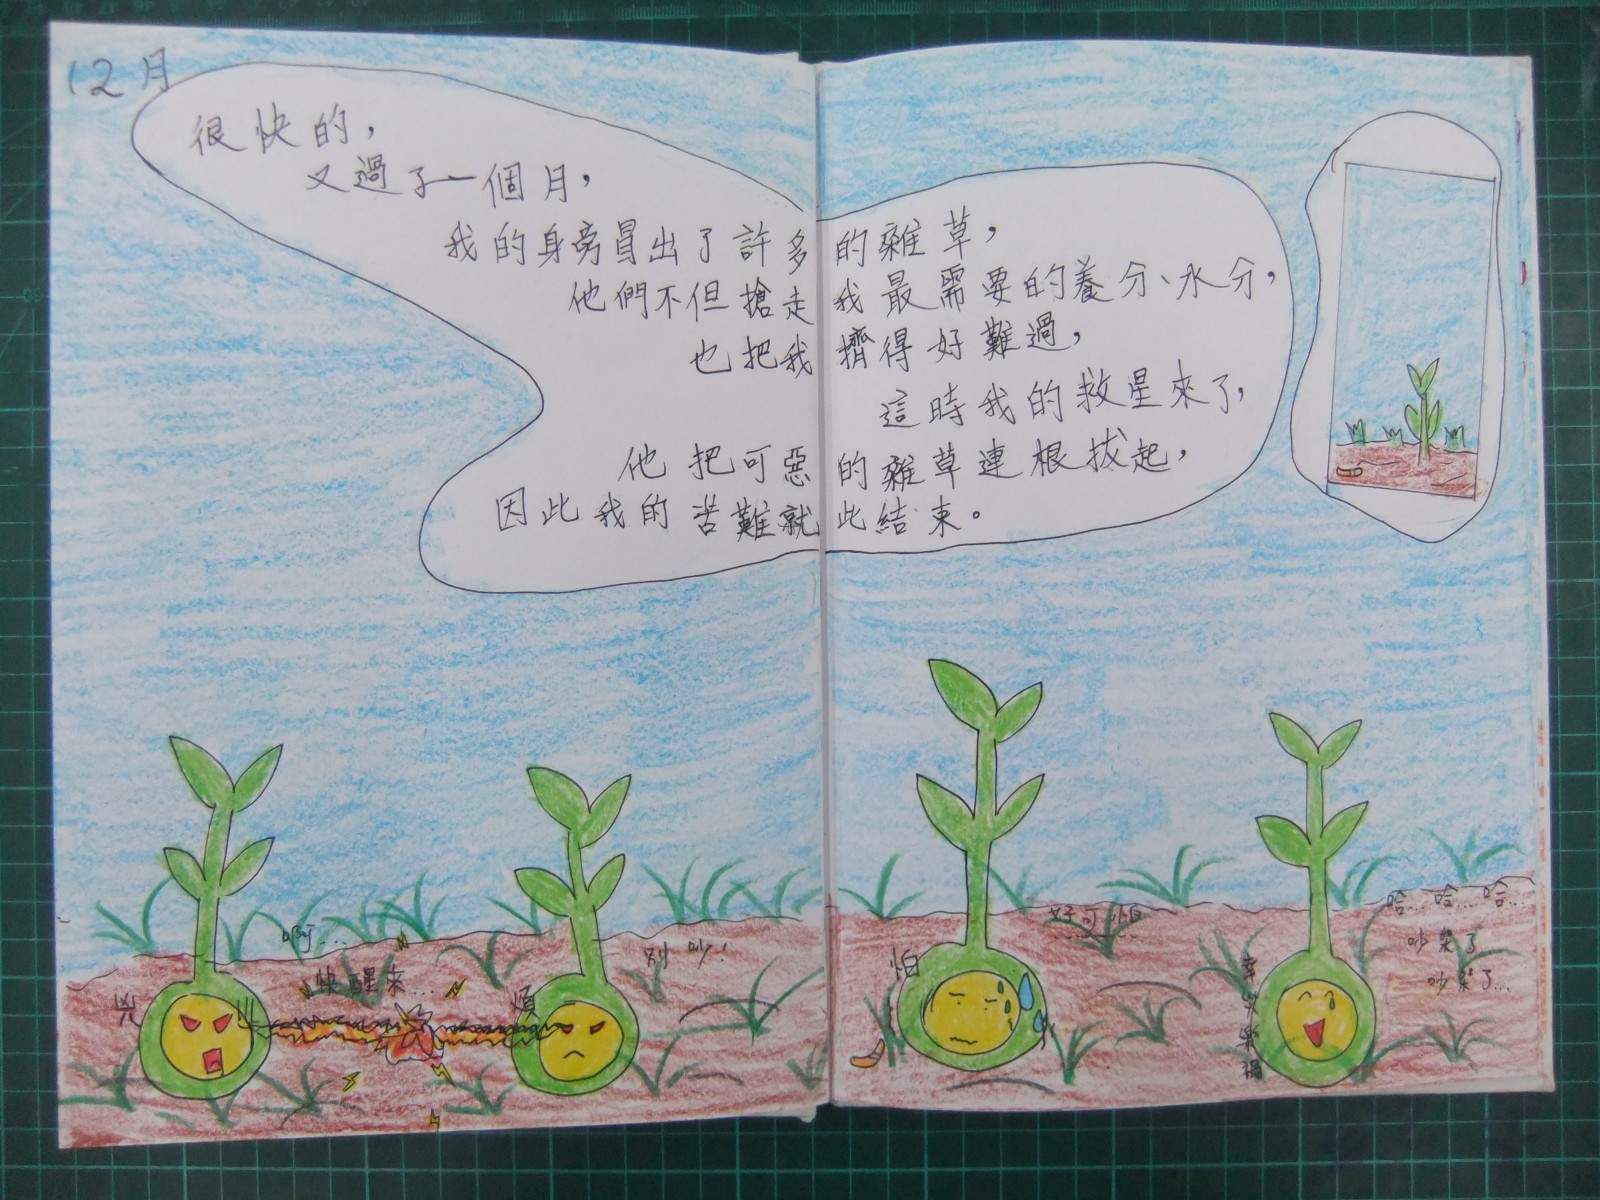 12月
很快的，
又過了一個月，
我的身旁冒出了許多的雜草，
他們不但搶走我最需要的養分、水分，
也把我擠得好難過，
這時我的救星來了，
他把可惡的雜草連根拔起，
因此我的苦難就此結束。
啊…
快醒來…
兇
煩
別吵！
怕
好可怕
哈…哈…哈…
吵架了
吵架了…